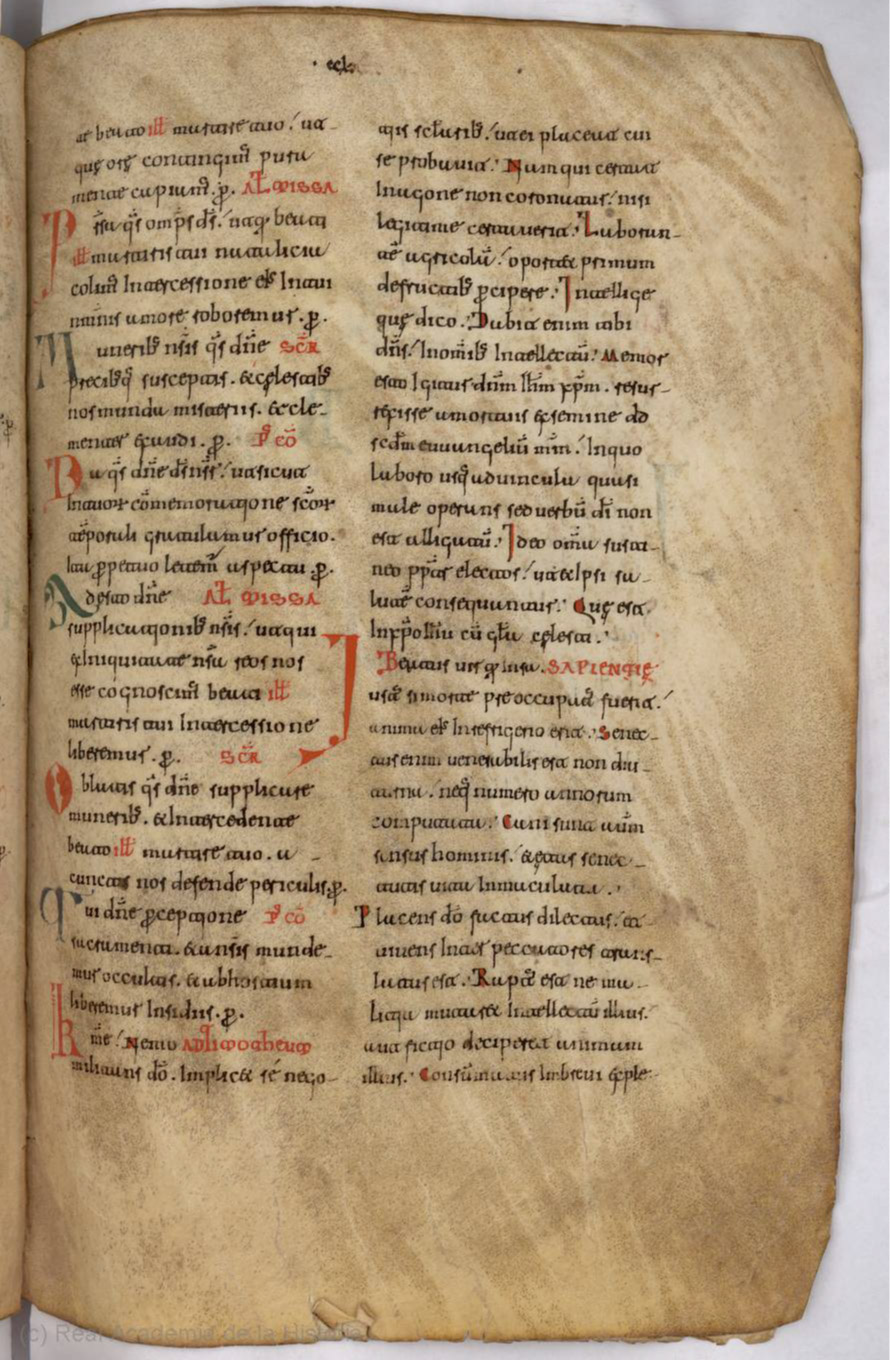 · ccl·
te beato ill martire tuo / ua-
quę ore contingim pura
mente capium. p. AL MISSA
Presta qs omps ds / ut qi beati
ill martiris tui natalicia
colim Intercessione ei In tui
nminis amore roboremur. p.
Muneribs nris qs dne SCR
precibqi susceptis. & cęlestibs
nos munda misteriis. & cle-
menter exaudi. p. P CO
Da qs dne ds nr / ut sicut
In tuor comemoratione scor
temporali gratulamur officio.
Ita p petuo letem aspectu. p.
Adesto dne AL MISSA
supplicationibs nris / ut qui
ex Iniquitate nra reos nos
esse cognoscim beati ill
martiris tui Intercessione
liberemur. p. SCR
Oblatis qs dne supplicare
muneribs. & Intercedente
beato ill martire tuo. a -
cunctis nos defende periculis. p.
Tui dne pceptione P CO
sacramenti. & a nris munde-
mur occultis. & ab hostium
liberemur Insidiis. p.
Kme / Nemo AD TIMOTHEUM
militans do. Implicat se nego-
tiis sclaribs / ut ei placeat cui
se probauit. Nam qui certat
In agone non coronatur / nisi
legitime certauerit. Laboran-
te agricola / oportet primum
de fructibs pcipere. Intellige
quę dico. Dabit enim tibi
dns / In omibs Intellectu. Memor
esto Igitur dnm Ihm xpm. resur-
rexisse a mortuis ex semine dd
scdm euuangeliu mm / In quo
laboro usqi ad uincula quasi
male operans sed uerbu di non
est alligatu. Ideo omia susti-
neo ppter electos / ut & Ipsi sa-
lute consequantur. Quę est
In xpo Ihu cu gla cęlesti.
Beatus uir q Inu. SAPIENTIE
Iustus si morte preoccupat fuerit /
anima ei In refrigerio erit. Senec-
tus enim uenerabilis est non diu-
turna / neqi numero annorum
computata. Cani sunt aum
sensus hominis / & ętas senec-
tutis uita Inmaculata.
Placens do factus dilectus / et
uiuens Inter peccatores trans-
latus est. Raptus est ne ma-
litia mutaret Intellectu illius /
aut fictio deciperet animam
illius. Consumatus In breui exple-